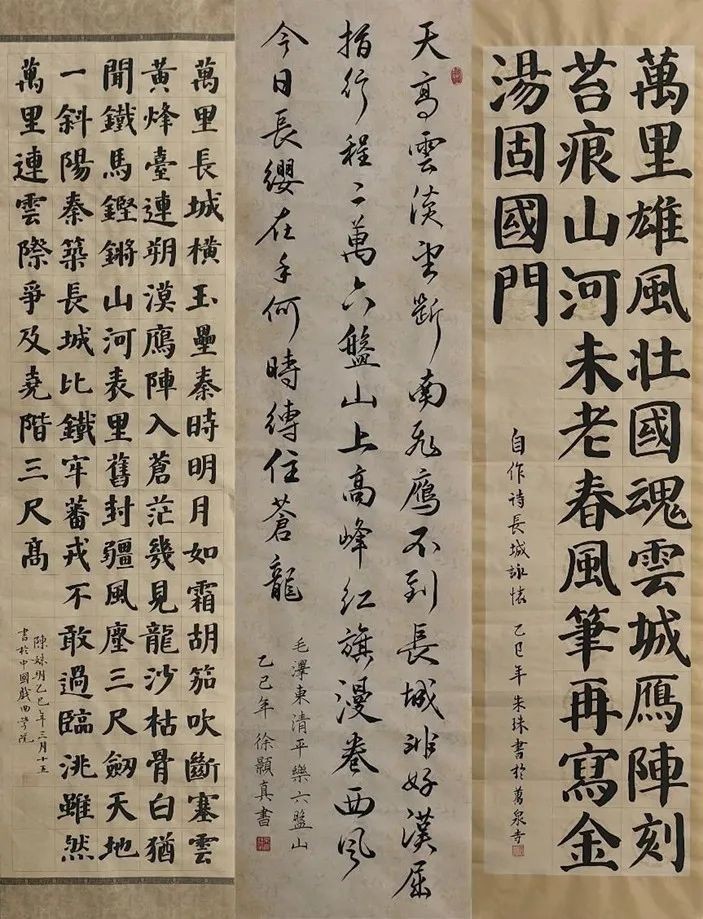 萬里雄風壯國魂雲城鴈陣刻
苔痕山河未老春風筆再寫金
湯固國門
自作诗長城詠懷 乙巳年 朱珠書於萬泉寺
天高雲淡望斷南飛鴈不到長城非好漢屈
指行程二萬六盤山上高峰紅旗漫卷西風
今日長纓在手何時縛住蒼龍
毛澤東清平樂六盤山
乙巳年徐顥真書
萬里長城橫玉壘秦時明月如霜胡笳吹斷塞雲
黄烽臺連朔漠鴈陣入蒼茫幾見龍沙枯骨白猶
聞鐵馬鏗鏘山河表里舊封疆風塵三尺劒天地
一斜陽秦築長城比鐵牢蕃戎不敢過臨洮雖然
萬里連雲際爭及堯階三尺高
陳姝明乙巳年三月十五
書於中國戲曲學院